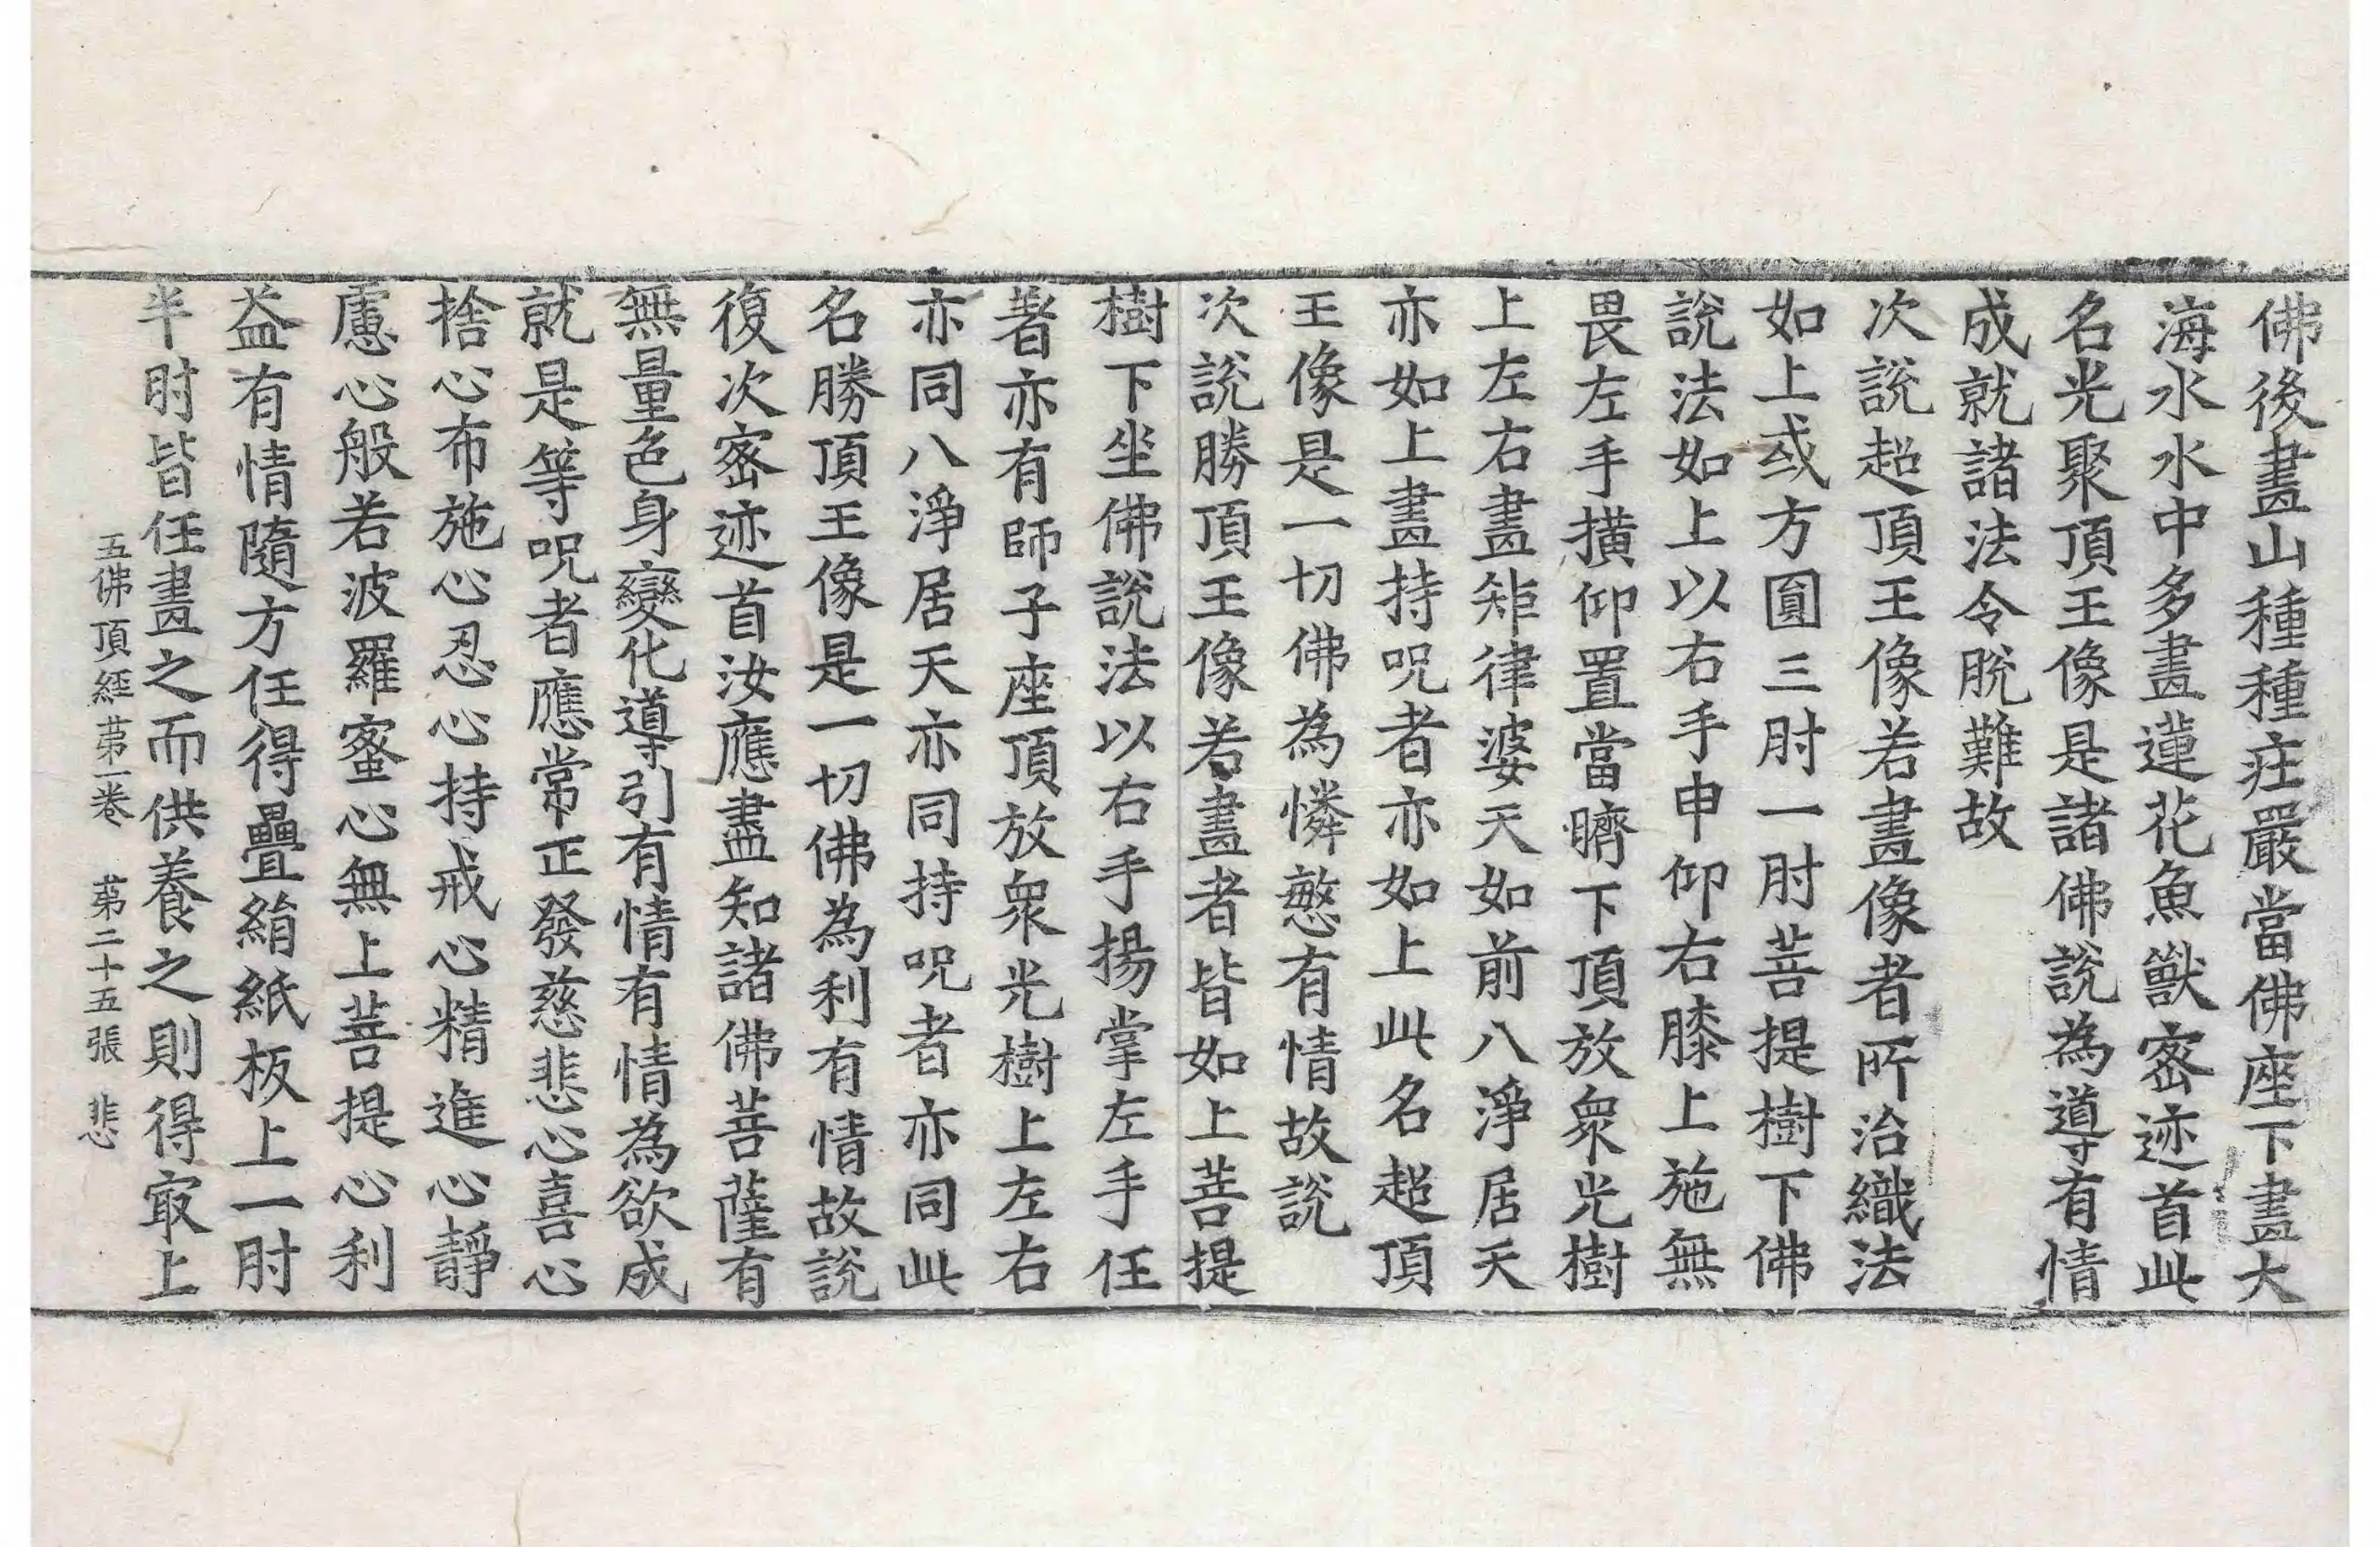 佛後畫山種種庄嚴當佛座下畫大
海水水中多畫蓮花魚獸宻迹首此
名光聚頂王像是諸佛說為導有情
成就諸法令脫難故
次說超頂王像若畫像者所治織法
如上或方圓三肘一肘菩提樹下佛
說法如上以右手申仰右膝上施無
畏左手撗仰置當臍下頂放衆光樹
上左右畫矩律婆天如前八淨居天
亦如上畫持呪者亦如上此名超頂
王像是一切佛為憐愍有情故說
次說勝頂王像若畫者皆如上菩提
樹下坐佛說法以右手揚掌左手任
著亦有師子座頂放衆光樹上左右
亦同八淨居天亦同持呪者亦同此
名勝頂王像是一切佛為利有情故說
復次宻迹首汝應盡知諸佛菩薩有
無量色身變化導引有情有情為欲成
就是等呪者應常正發慈悲心喜心
捨心布施心忍心持戒心精進心靜
慮心般若波羅蜜心無上菩提心利
益有情隨方任得疊絹紙板上一肘
半肘皆任畫之而供養之則得㝡上
五佛頂經苐一卷 苐二十五張 悲